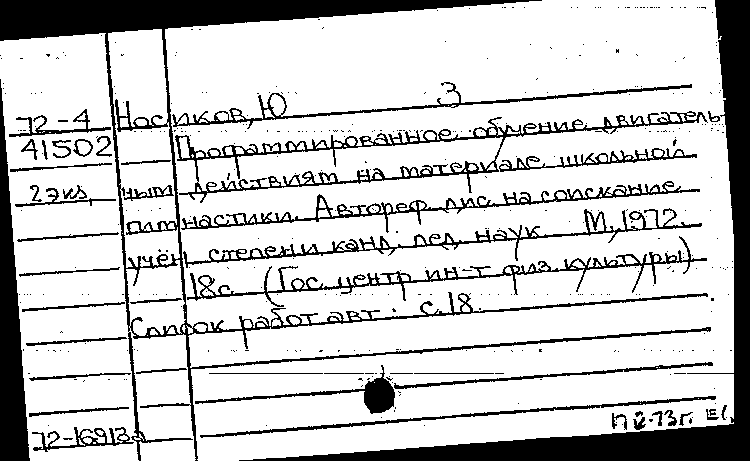 3
72-4 Носиков, Ю
41502 Программированное обучение двигатель-
2 экз. ным действиям на материале школьной
гимнастики. Автореф. дис. на соискание
учён. степени канд. пед. наук. М., 1972.
18с. (Гос. центр. ин-т физ. культуры)
Список работ авт.: с. 18.
72-16913а